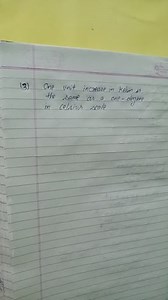 (2) One unit increase in kelvin is
the same as a one-degree
in celsius scale